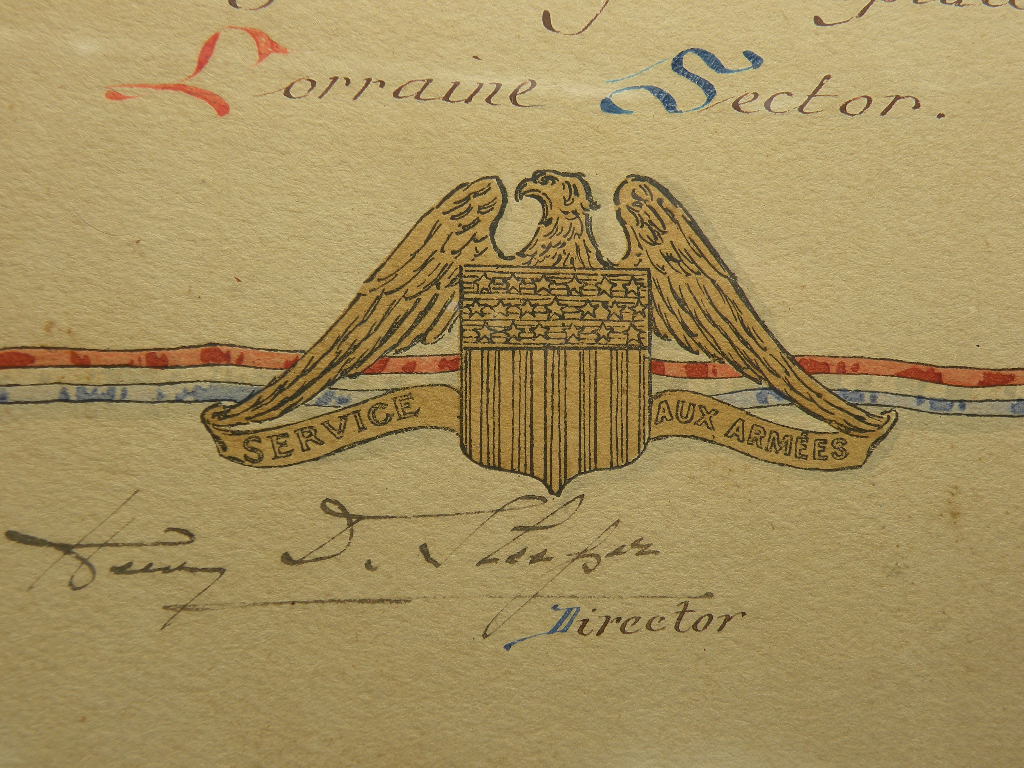 Lorraine Sector.
SERVICE AUX ARMÉES
Henry D. Sleeper
Director